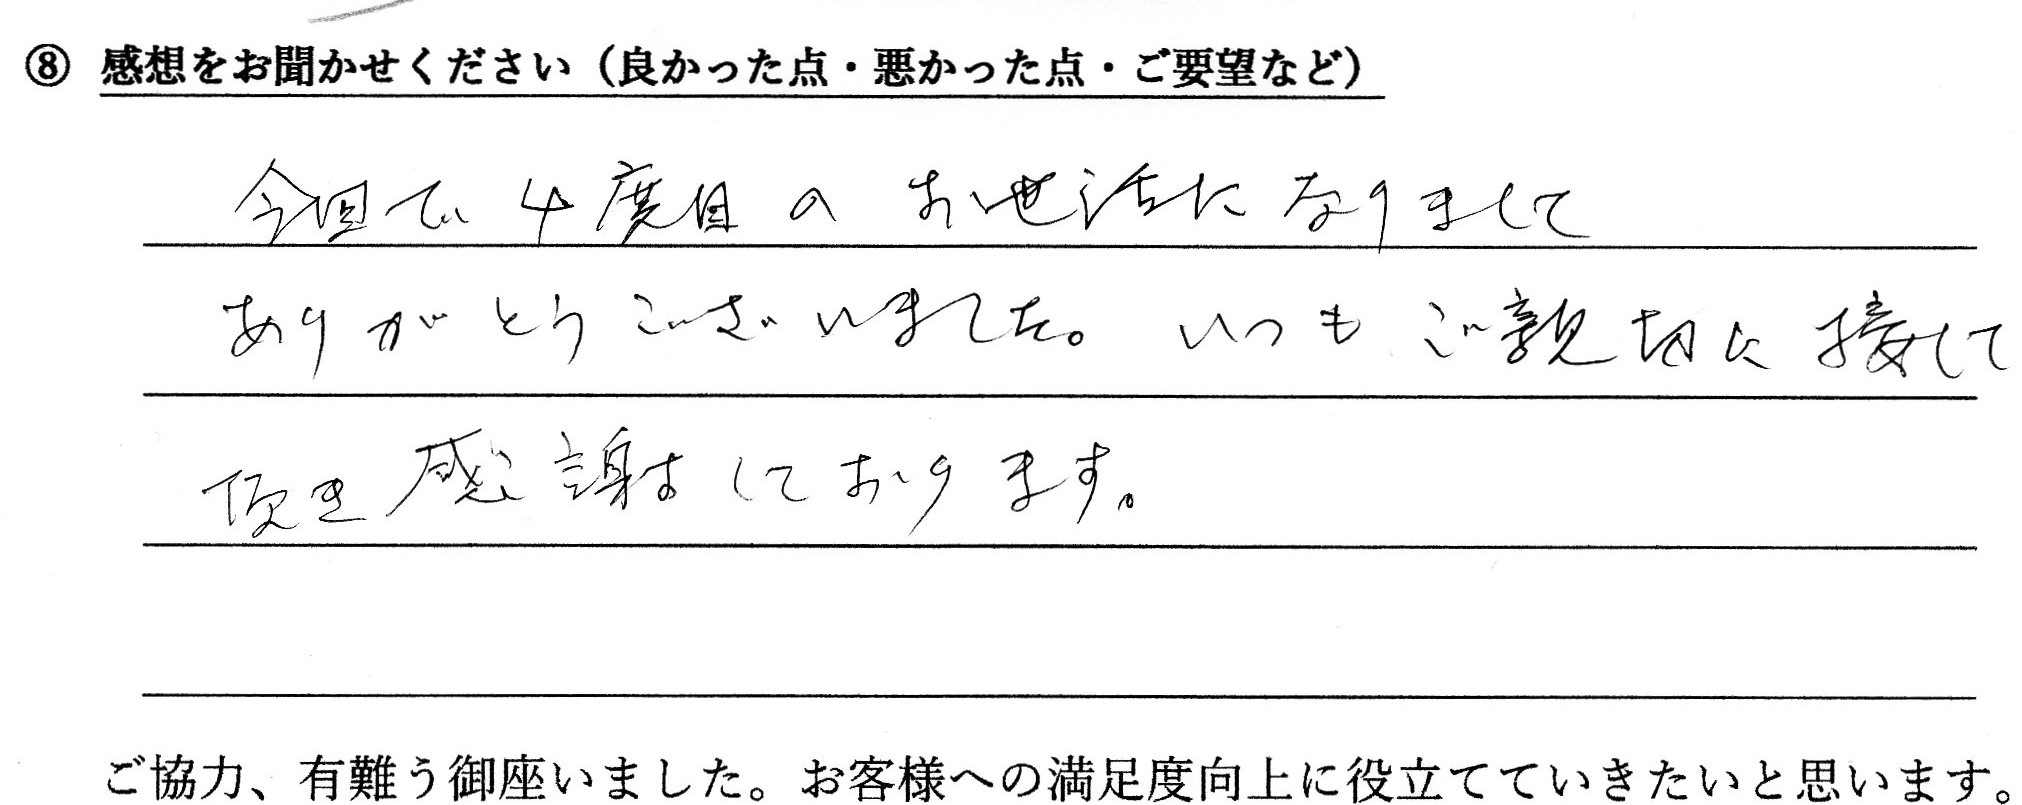 ⑧ 感想をお聞かせください（良かった点・悪かった点・ご要望など）
今回で4度目のお世話になりまして
ありがとうございました。いつもご親切に接して
頂き感謝しております。
ご協力、有難う御座いました。お客様への満足度向上に役立てていきたいと思います。